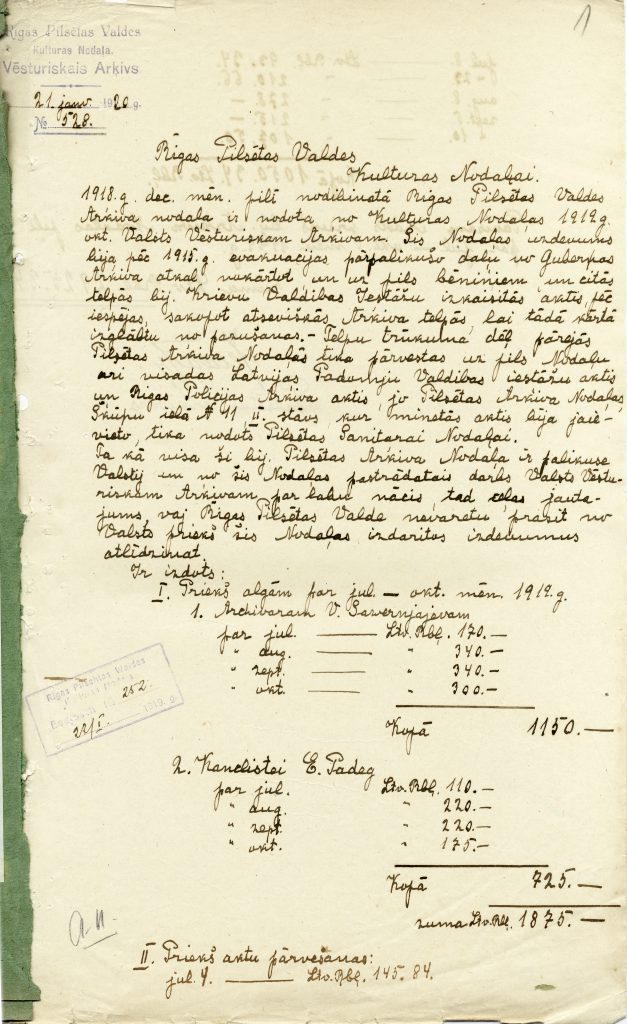 1
Rīgas Pilsētas Valdes
Kulturas Nodaļa.
Vēsturiskais Arķivs
21. janv. 1920 g.
№ 528.
Rīgas Pilsētas Valdes
Kulturas Nodaļai.
1918.g. dec. mēn. pilī nodibinatā Rīgas Pilsētas Valdes
Arķiva nodaļa ir nodota no Kulturas Nodaļas 1919.g.
okt. Valsts Vēsturiskam Arķivam. Šis Nodaļas uzdevums
bija pēc 1915.g. evakuacijas pārpalikušo daļu no Guberņas
Arķiva atkal nokārtot un uz pils bēniņiem un citās
telpās bij. Krievu Valdibas Iestāžu izkaisitās aktis, pēc
iespējas, sakopot atseviškās Arķiva telpās, lai tādā kārtā
izglābtu no pazušanas. — Telpu trūkuma dēļ pārējās
Pilsētas Arķiva Nodaļās tika pārvestas uz pils Nodaļu
ari visadas Latvijas Padomju Valdibas iestāžu aktis
un Rīgas Policijas Arķiva aktis, jo Pilsētas Arķiva Nodaļas,
Šķūņu ielā № 11, II. stāvs, kur minetās aktis bija jaie-
vieto, tika nodots Pilsētas Sanitarai Nodaļai.
Ta kā visa ši bij. Pilsētas Arķiva Nodaļa ir palikuse
Valstij un no šis Nodaļas pastrādatais darbs Valsts Vēstu-
riskam Arķivam par labu nācis, tad ceļas jauta-
jums, vaj Rīgas Pilsētas Valde nevaretu prasit no
Valsts priekš šis Nodaļas izdaritos izdevumus
atlīdzinat.
Ir izdots:
I. Priekš algām par jul. — okt. mēn. 1919.g.
1. Archivaram V.
par jul. — Ltv. Rbļ. 170.—
" aug. — " 340.—
" sept. — " 340.—
" okt. — " 300.—
Kopā 1150.—
Rigas Pilsehtas Waldes
252.
1919. g.
22/I.
2. Kanclistei E. Padeg
par jul. Ltv. Rbļ. 110.—
" aug. " 220.—
" sept. " 220.—
" okt. " 175.—
Kopā 725.—
suma Ltv. Rbļ. 1875.—
II. Priekš aktu pārvešanas:
jul. 9. — Ltv. Rbļ. 145.84.